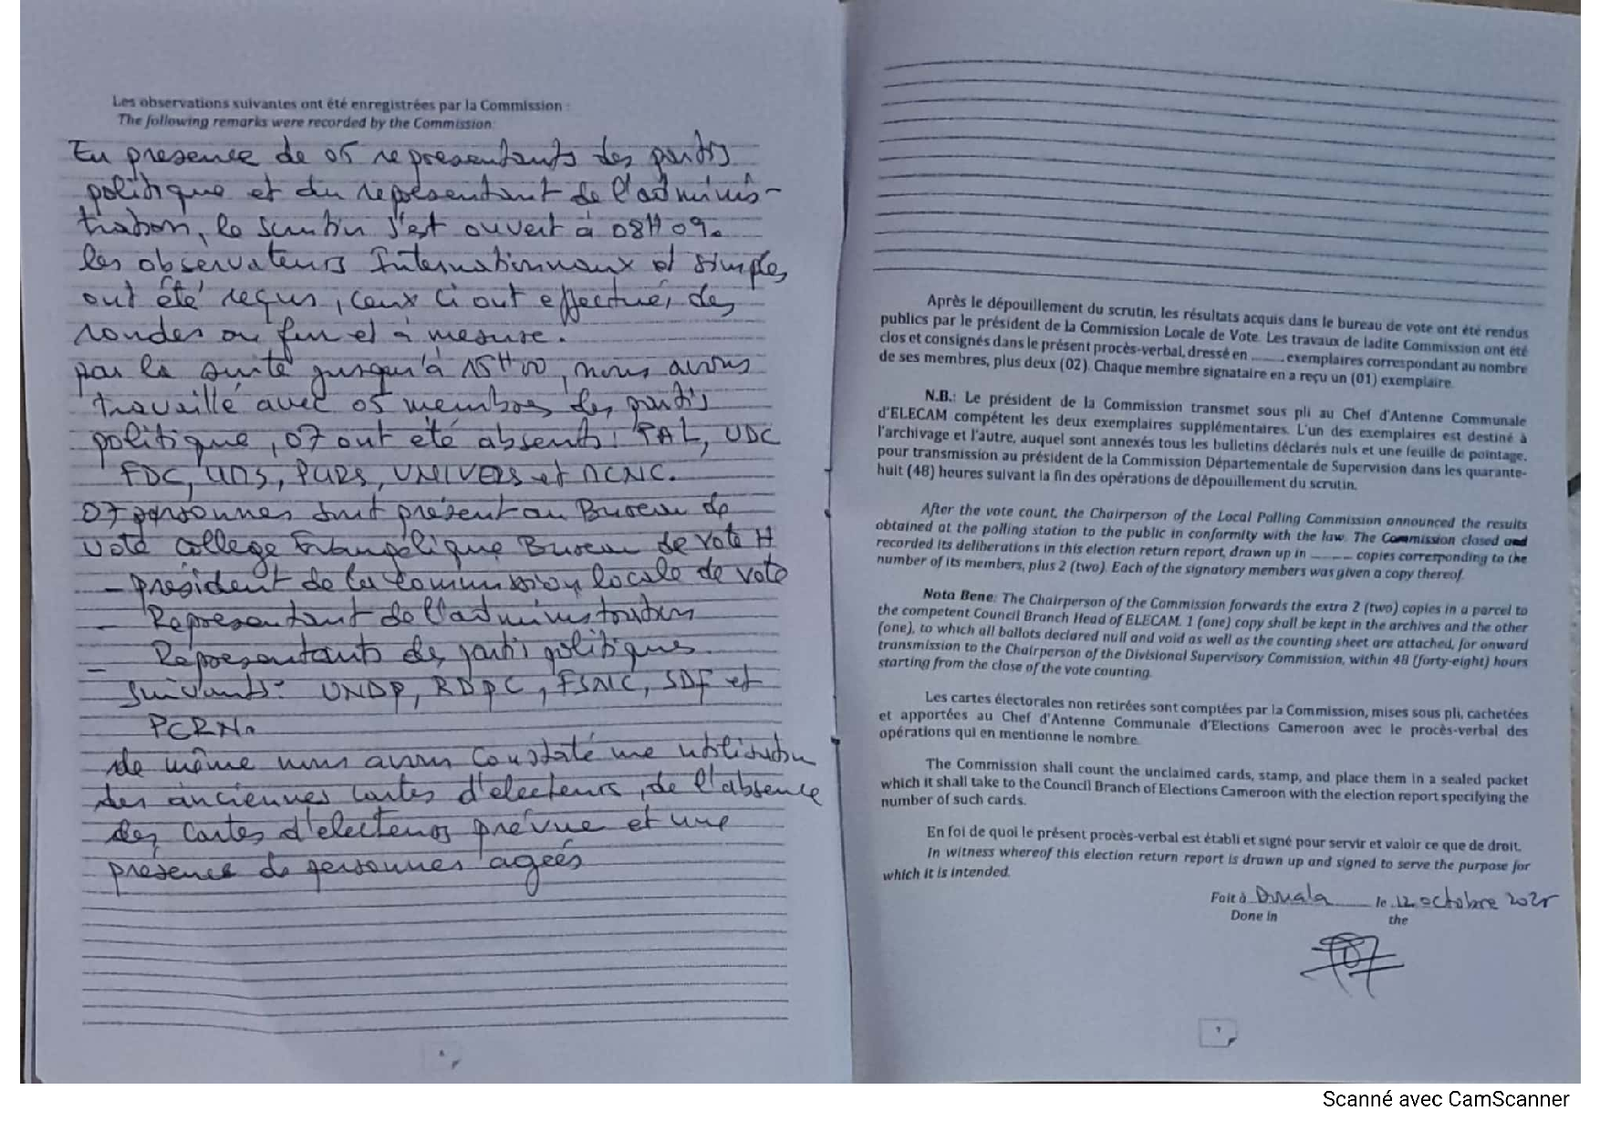 Les observations suivantes ont été enregistrées par la Commission :
The following remarks were recorded by the Commission:
En presence de 05 representants des partis
politique et du représentant de l'adminis-
tration, le scrutin s'est ouvert à 08H 09.
les observateurs Internationnaux et simples
ont été reçus, ceux ci ont effectué, des
rondes au fur et à mesure.
par la suite jusqu'à 15H00, nous avons
travaillé avec 05 membres des partis
politique, 07 ont été absents: PAL, UDC
FDC, UMS, PURS, UNIVERS et MCNC.
07 personnes sont présent au Bureau de
vote college Evangélique Bureau de vote H
- président de la commission locale de vote
- Représentant de l'administration
- Représentants des parti politiques
suivants: UNDP, RDPC, FSNC, SDF et
PCRN.
de même nous avons constaté une utilisation
des anciennes cartes d'electeurs, de l'absence
des cartes d'electeurs prévue et une
présence de personnes ageés
Après le dépouillement du scrutin, les résultats acquis dans le bureau de vote ont été rendus
publics par le président de la Commission Locale de Vote. Les travaux de ladite Commission ont été
clos et consignés dans le présent procès-verbal, dressé en ........ exemplaires correspondant au nombre
de ses membres, plus deux (02). Chaque membre signataire en a reçu un (01) exemplaire.
N.B.: Le président de la Commission transmet sous pli au Chef d'Antenne Communale
d'ELECAM compétent les deux exemplaires supplémentaires. L'un des exemplaires est destiné à
l'archivage et l'autre, auquel sont annexés tous les bulletins déclarés nuls et une feuille de pointage,
pour transmission au président de la Commission Départementale de Supervision dans les quarante-
huit (48) heures suivant la fin des opérations de dépouillement du scrutin.
After the vote count, the Chairperson of the Local Polling Commission announced the results
obtained at the polling station to the public in conformity with the law. The Commission closed and
recorded its deliberations in this election return report, drawn up in ........ copies corresponding to the
number of its members, plus 2 (two). Each of the signatory members was given a copy thereof.
Nota Bene: The Chairperson of the Commission forwards the extra 2 (two) copies in a parcel to
the competent Council Branch Head of ELECAM. 1 (one) copy shall be kept in the archives and the other
(one), to which all ballots declared null and void as well as the counting sheet are attached, for onward
transmission to the Chairperson of the Divisional Supervisory Commission, within 48 (forty-eight) hours
starting from the close of the vote counting.
Les cartes électorales non retirées sont comptées par la Commission, mises sous pli, cachetées
et apportées au Chef d'Antenne Communale d'Elections Cameroon avec le procès-verbal des
opérations qui en mentionne le nombre.
The Commission shall count the unclaimed cards, stamp, and place them in a sealed packet
which it shall take to the Council Branch of Elections Cameroon with the election report specifying the
number of such cards.
En foi de quoi le présent procès-verbal est établi et signé pour servir et valoir ce que de droit.
In witness whereof this election return report is drawn up and signed to serve the purpose for
which it is intended.
Fait à Douala le 12 octobre 2025
Done in the
7
Scanné avec CamScanner